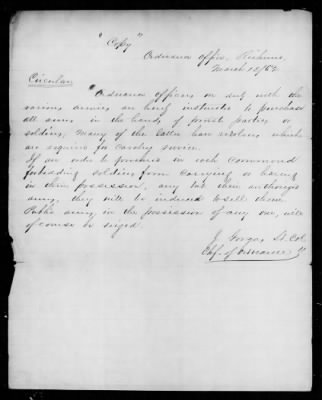 "Copy"
Ordnance Office, Richmond
March 15/62
Circular
"Ordnance officers on duty with the
various armies are being instructed to purchase
all arms in the hands of private parties or
soldiers, Many of the latter have revolvers which
are required for Cavalry service.
If an order be furnished in each command
forbidding soldiers from carrying or having
in their possession, any but their authorized
arms, they will be induced to sell them.
Public arms, in the possession of any one, will
of course be seized.
J. Gorgas Lt. Col.
Chf. of Ordnance